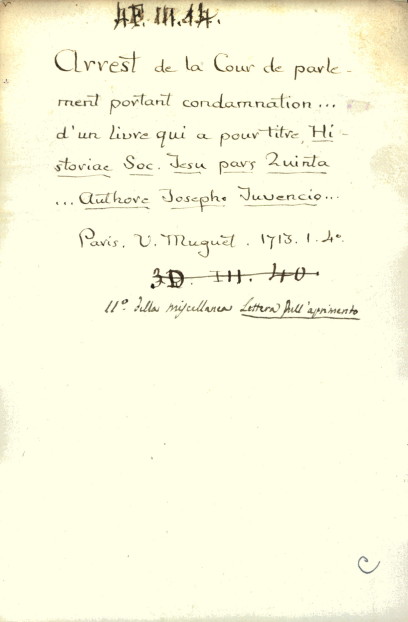 4E. III. 14.
Arrest de la Cour de parle-
ment portant condamnation...
d'un livre qui a pour titre, Hi-
storiae Soc. Jesu pars Quinta
... Authore Josepho Juvencio...
Paris. V. Muguet. 1713. 1. 4°.
3D. III. 40.
11° della miscellanea Lettera sull'
C